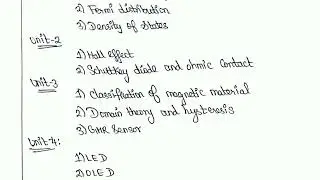 2) Fermi distribution
3) Density of states
Unit-2
1) Hall effect
2) Schuttkey diode and ohmic contact
Unit-3
1) classification of magnetic material
2) Domain theory and hysteresis
3) GMR Sensor
Unit-4:
1) LED
2) OLED